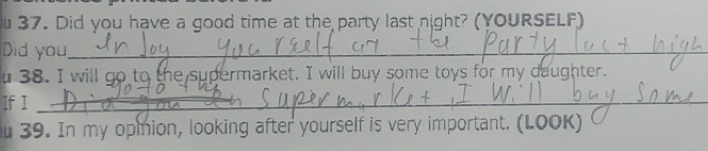 u 37. Did you have a good time at the party last night? (YOURSELF)
Did you In Joy you rself at the Party last nigh
u 38. I will go to the supermarket. I will buy some toys for my daughter.
If I go to the supermarket, I will buy Some
u 39. In my opinion, looking after yourself is very important. (LOOK)